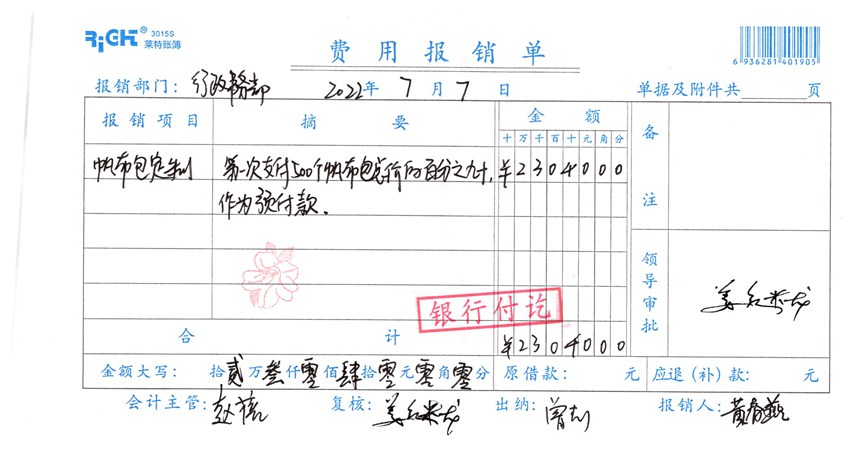 RiCH® 3015S
莱特账簿
费用报销单
6 936281 401905
报销部门：行政部 2022年 7月7日 单据及附件共 页
报销项目 摘要 金额 备注
十万千百十元角分
帆布包定制 第一次支付500个帆布包总价的百分之九十， ¥2304000
作为预付款。
领导审批
银行付讫
合计 ¥2304000
金额大写： 拾贰万叁仟零佰肆拾零元零角零分 原借款： 元 应退（补）款： 元
会计主管： 复核： 出纳： 报销人：黄春燕